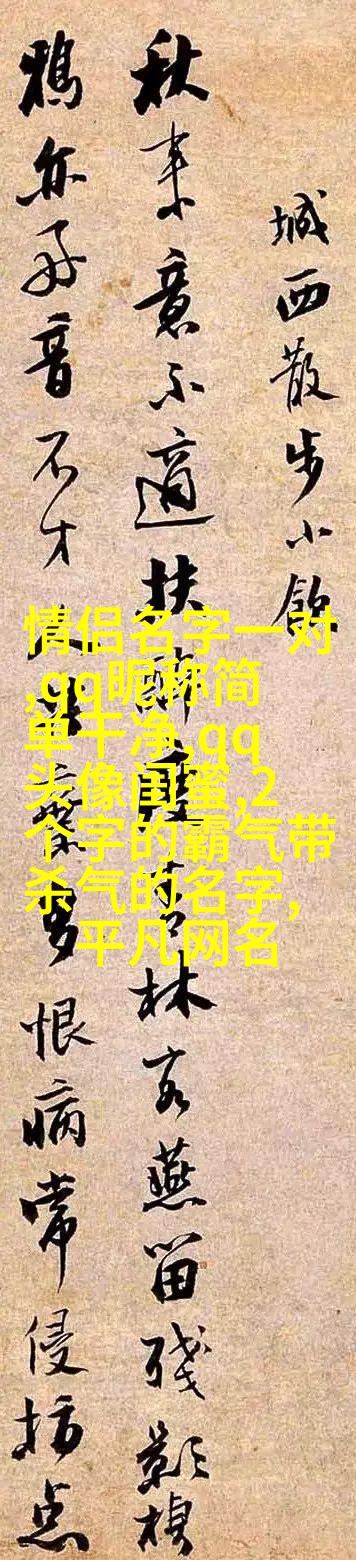 城西散步小
秋来意不適扶醉林客燕留残影
鴉亦好音不才多恨病常侵
情侣名字一对
,qq昵称简
单干净,qq
头像闺蜜,2
个字的霸气带
杀气的名字,
平凡网名